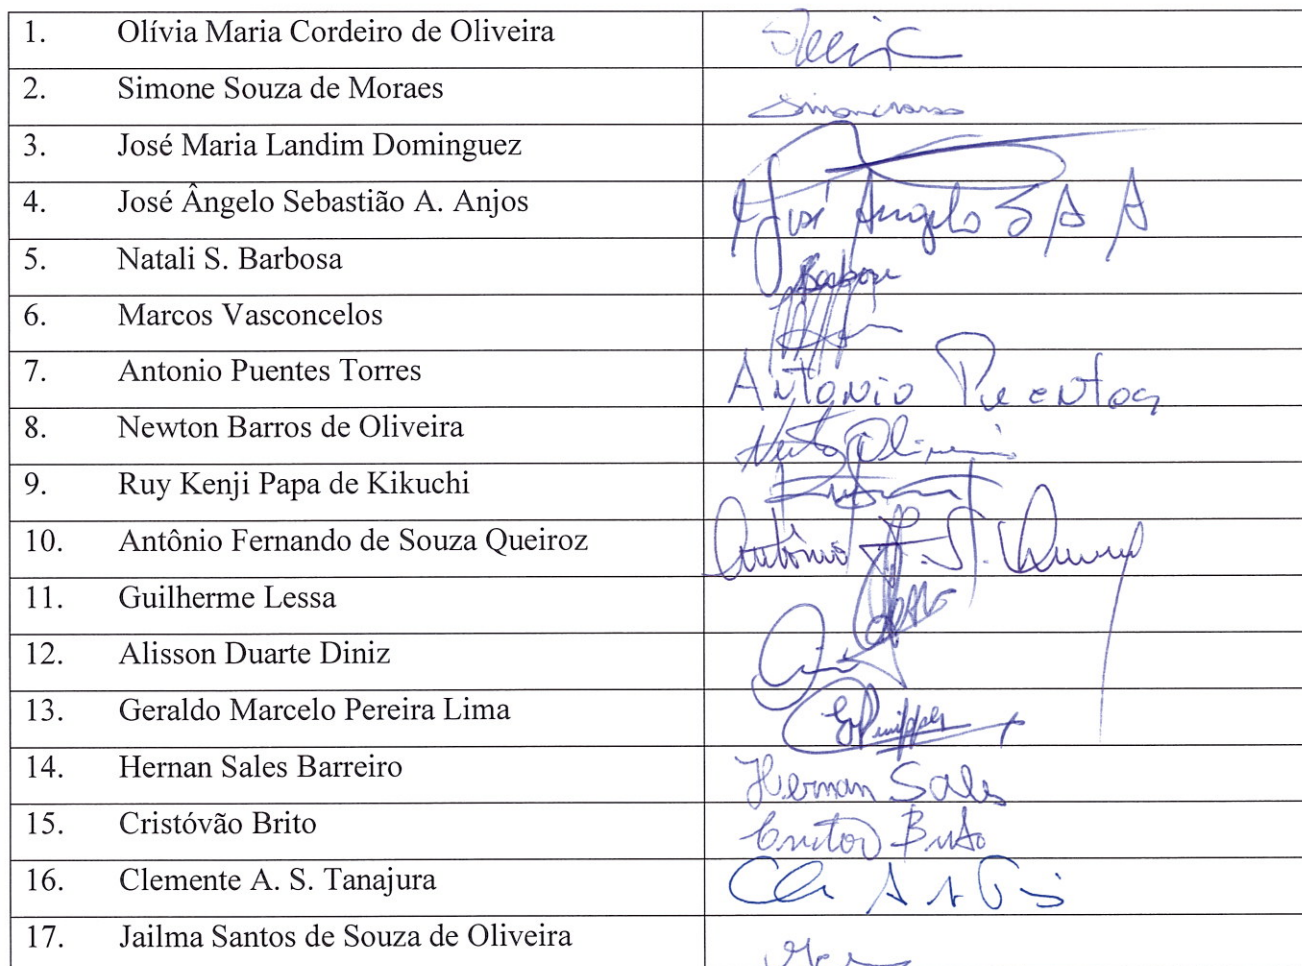 1. Olívia Maria Cordeiro de Oliveira
2. Simone Souza de Moraes
3. José Maria Landim Dominguez
4. José Ângelo Sebastião A. Anjos José Angelo S A A
5. Natali S. Barbosa Barbosa
6. Marcos Vasconcelos
7. Antonio Puentes Torres Antonio Puentes
8. Newton Barros de Oliveira
9. Ruy Kenji Papa de Kikuchi
10. Antônio Fernando de Souza Queiroz Antônio F. S.
11. Guilherme Lessa
12. Alisson Duarte Diniz
13. Geraldo Marcelo Pereira Lima
14. Hernan Sales Barreiro Hernan Sales
15. Cristóvão Brito Brito
16. Clemente A. S. Tanajura
17. Jailma Santos de Souza de Oliveira